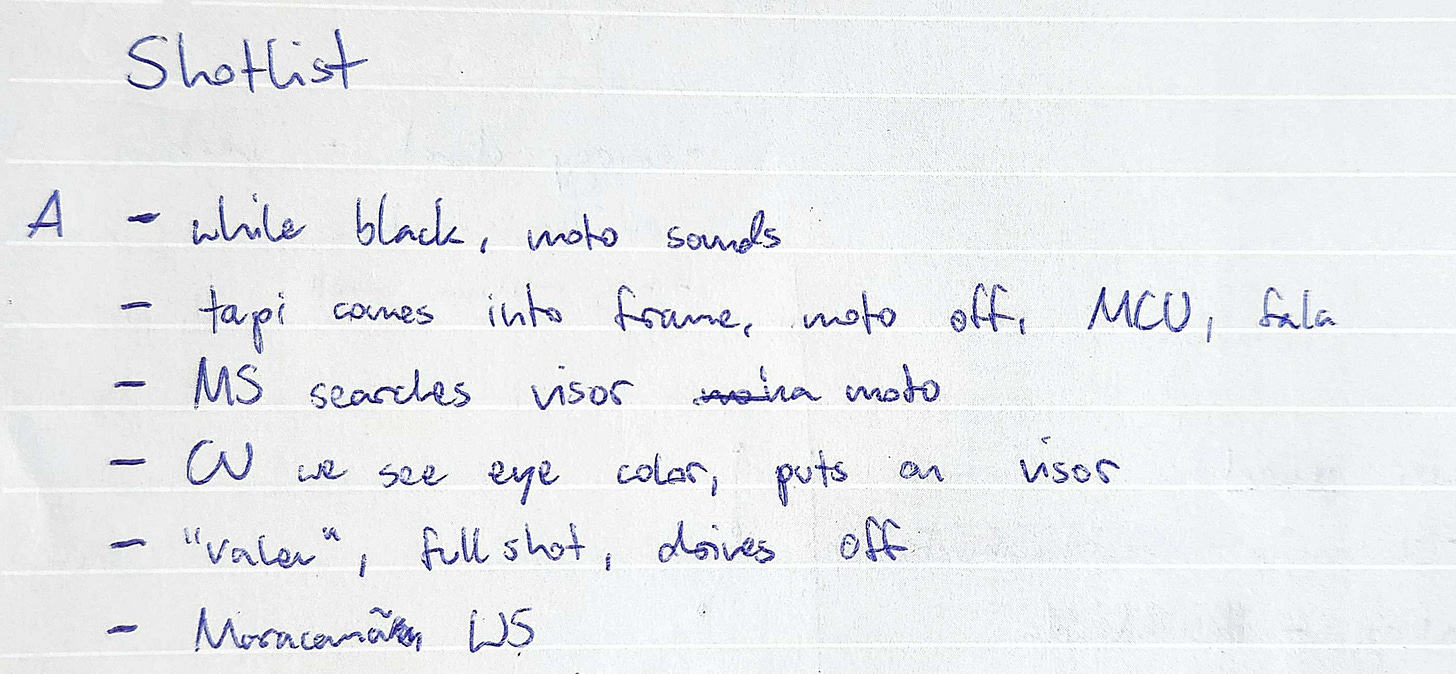 Shotlist
A - while black, moto sounds
- tapi comes into frame, moto off, MCU, fala
- MS searches visor moto
- CU we see eye color, puts on visor
- "valeu", full shot, drives off
- Maracanã, WS